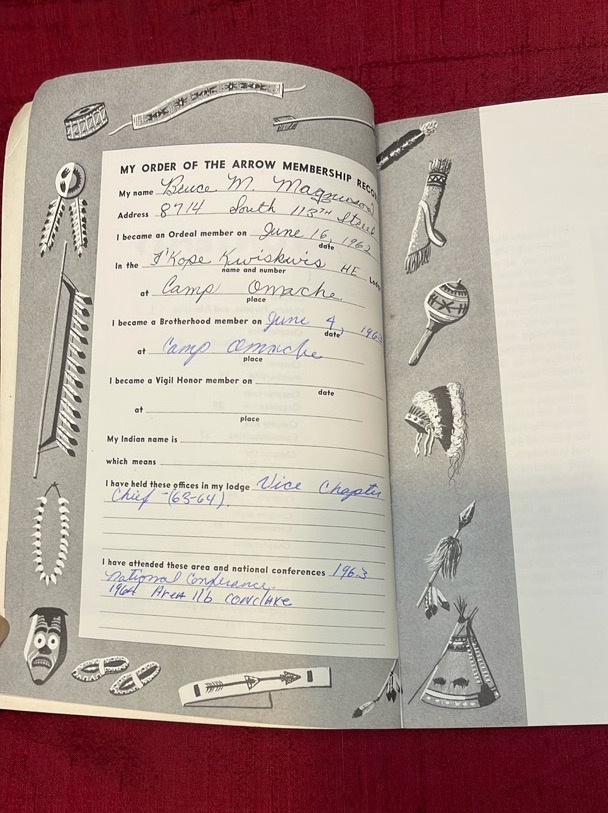 MY ORDER OF THE ARROW MEMBERSHIP RECO
My name Bruce M. Magnuson
Address 8714 South 113TH Street
I became an Ordeal member on June 16, 1962
date
In the T'Kope Kwiskwis HE Lod
name and number
at Camp Omache
place
I became a Brotherhood member on June 4, 1963
date
at Camp Omache
place
I became a Vigil Honor member on
date
at
place
My Indian name is
which means
I have held these offices in my lodge Vice Chapter
Chief -(63-64).
I have attended these area and national conferences 1963
National Conference
1964 Area 11b conclave